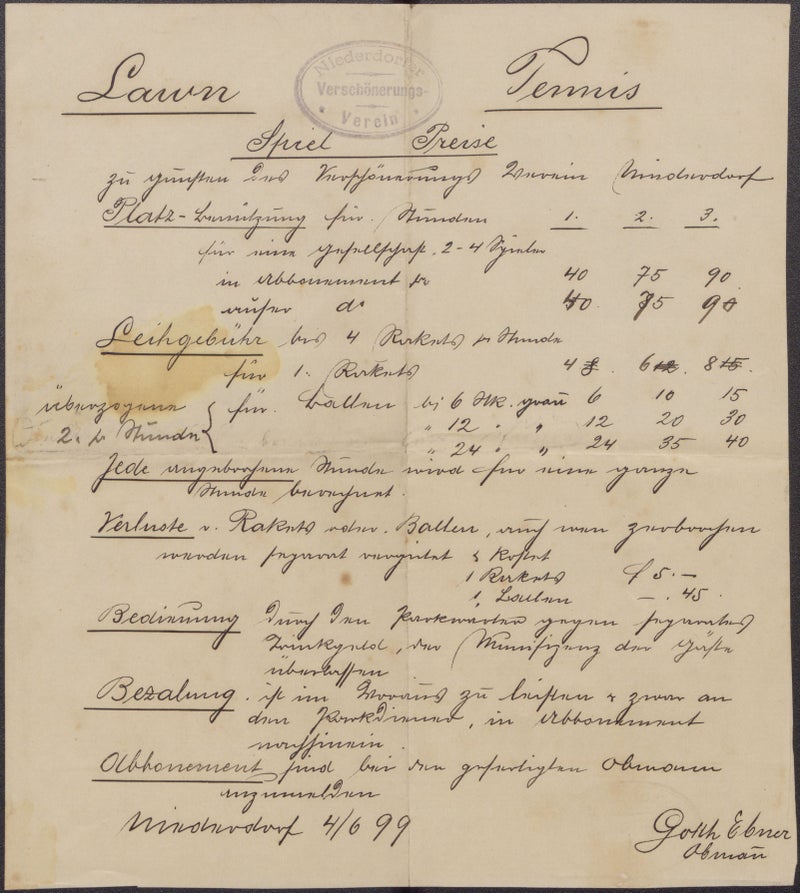 Niederdorfer
Verschönerungs-
Verein
Lawn Tennis
Spiel Preise
zu gunsten des Verschönerungs Verein Niederdorf
Platz-benützung für Stunden 1. 2. 3.
für eine Gesellschaft 2-4 Spieler
in Abbonement fr 40 75 90
außer do 40. 75 90
Leihgebühr bis 4 Rakets pr Stunde
für 1. Rakets 4 8. 6 12. 8 15.
Überzogene für Ballen bis 6 Stk. grau 6 10 15
2. pr Stunde „ 12 „ „ 12 20 30
„ 24 „ „ 24 35 40
Jede angebrochene Stunde wird für eine ganze
Stunde berechnet.
Verluste v. Rakets oder Ballen, auch wen zerbrochen
werden separat vergütet & kostet
1 Rakets f 5.—
1 Ballen —. 45.
Bedienung durch den Parkwärter gegen separates
Trinkgeld, der Munifizenz der Gäste
überlassen
Bezalung. ist im Voraus zu leisten & zwar an
den Parkdiener, in Abbonement
nachhinein.
Abbonement sind bei den gefertigten Obmann
anzumelden
Niederdorf 4/6 99
Gotth Ebner
Obmañ